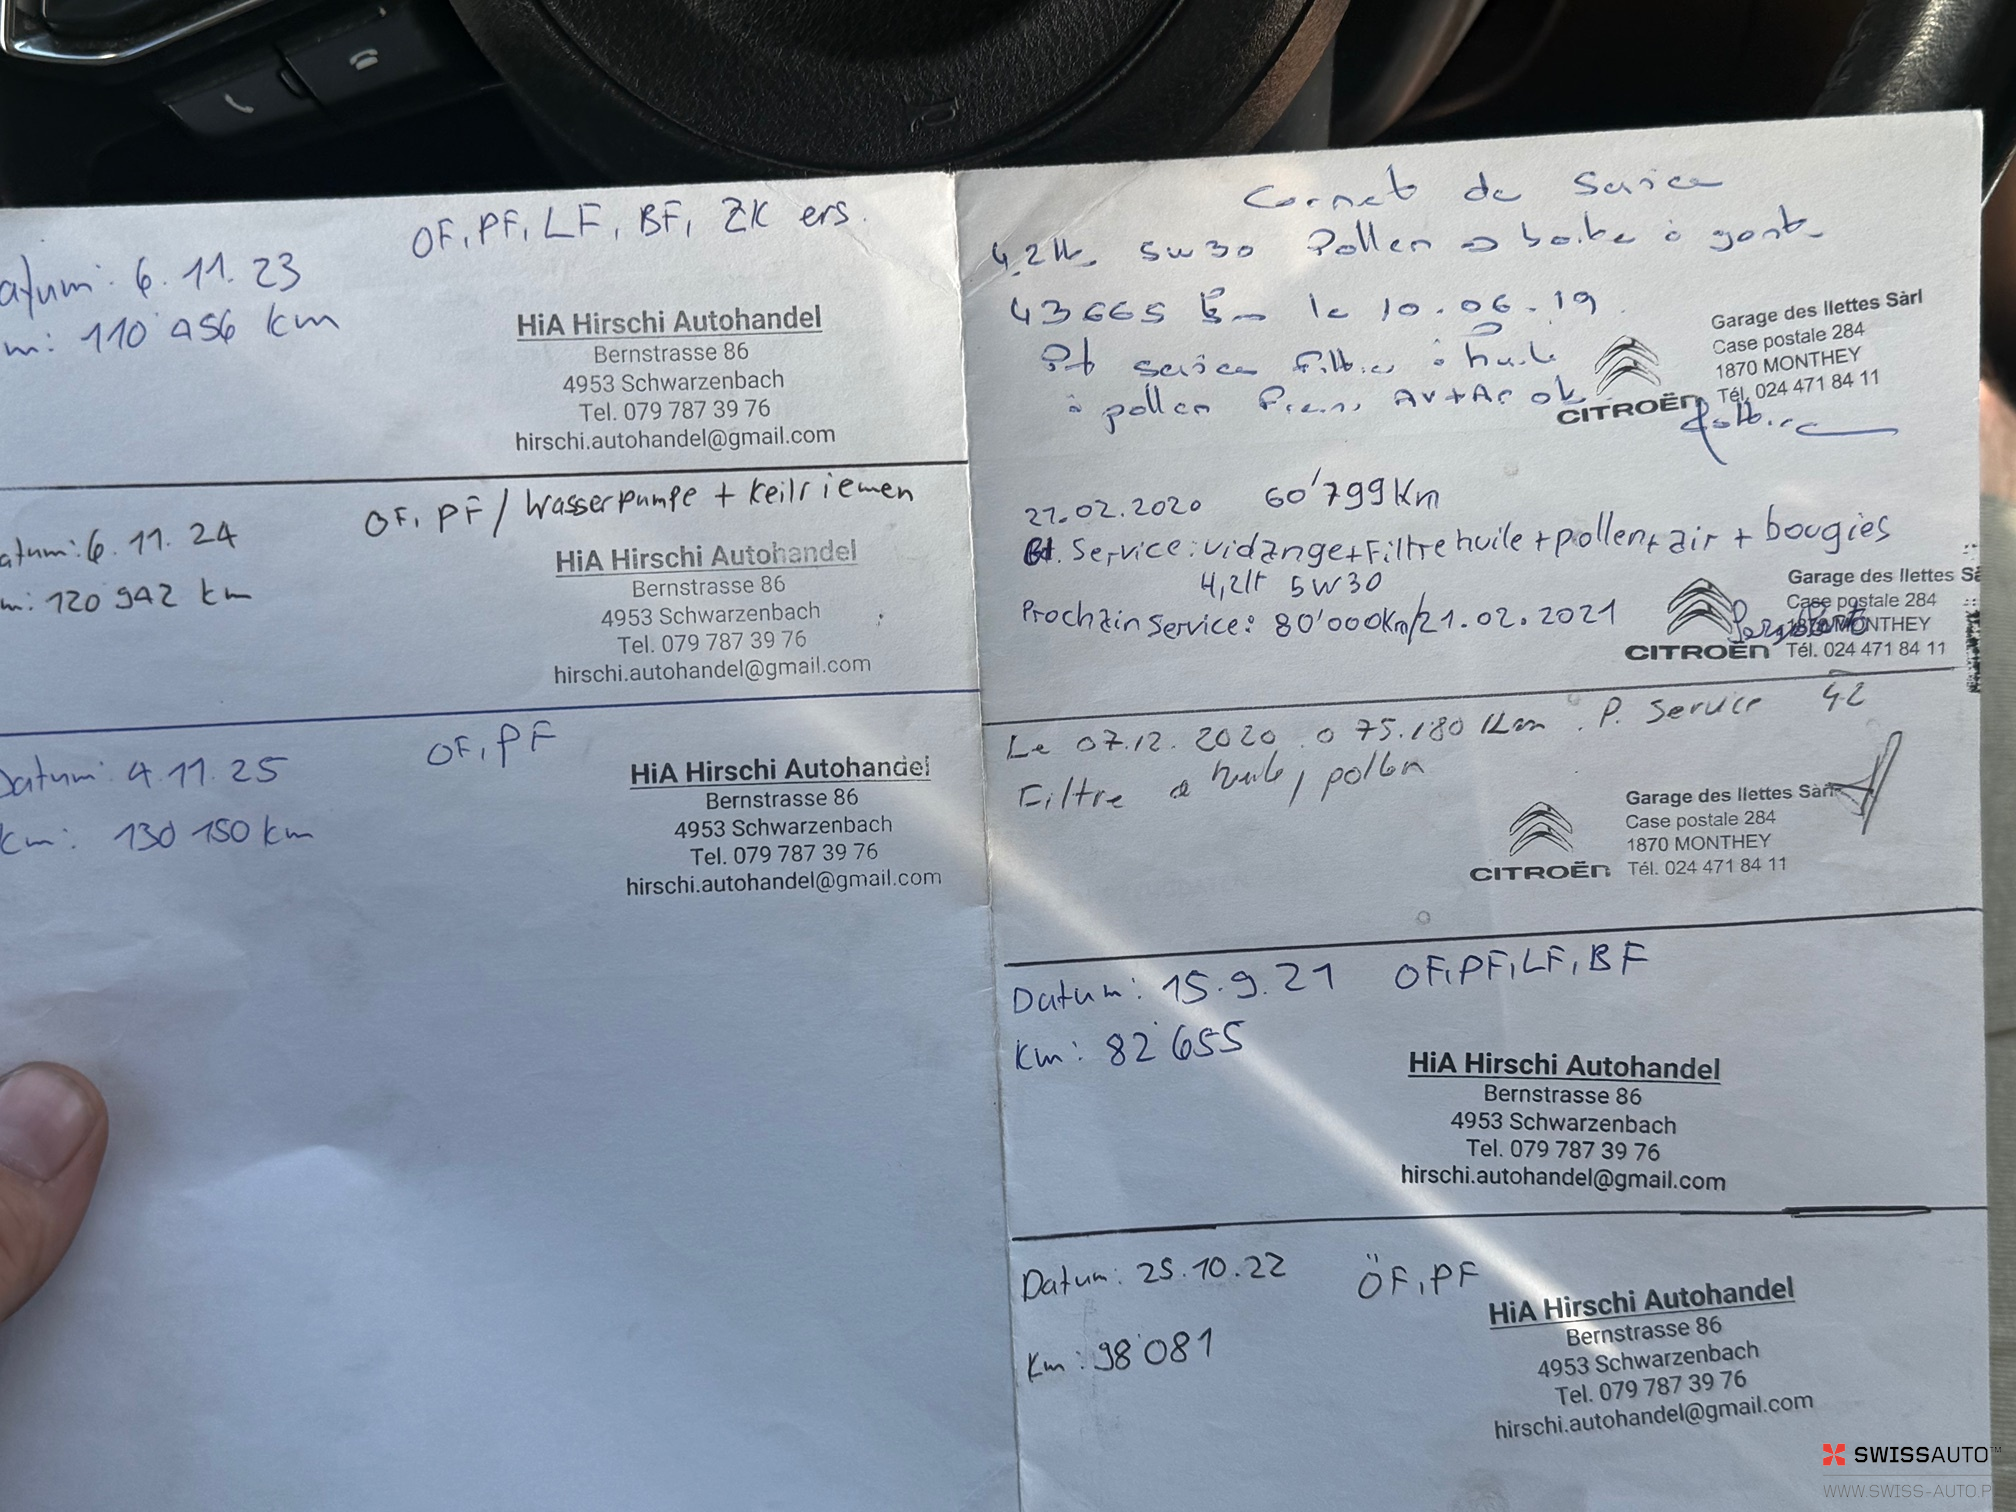 OF, PF, LF, BF, ZK ers.
atum: 6.11.23
m: 110'456 km
HiA Hirschi Autohandel
Bernstrasse 86
4953 Schwarzenbach
Tel. 079 787 39 76
hirschi.autohandel@gmail.com
OF, PF / Wasserpumpe + Keilriemen
atum: 6.11.24
m: 120'942 km
HiA Hirschi Autohandel
Bernstrasse 86
4953 Schwarzenbach
Tel. 079 787 39 76
hirschi.autohandel@gmail.com
OF, PF
Datum: 4.11.25
Km: 130'150 km
HiA Hirschi Autohandel
Bernstrasse 86
4953 Schwarzenbach
Tel. 079 787 39 76
hirschi.autohandel@gmail.com
Carnet de Service
4,2lt 5w30 Pollen boite à gants
43665 Km le 10.06.19
Pt service filtre à huile
à pollen Freins AV+AR ok
Garage des Ilettes Sàrl
Case postale 284
1870 MONTHEY
Tél. 024 471 84 11
CITROËN
21.02.2020 60'799Km
Gd. Service: vidange+Filtre huile+pollen+air+bougies
4,2lt 5W30
Prochain Service: 80'000Km/21.02.2021
Garage des Ilettes Sà
Case postale 284
1870 MONTHEY
Tél. 024 471 84 11
CITROËN
Le 07.12.2020 à 75.180 Km. P. Service 4.2
Filtre à huile, pollen
Garage des Ilettes Sàrl
Case postale 284
1870 MONTHEY
Tél. 024 471 84 11
CITROËN
Datum: 15.9.21 OF, PF, LF, BF
Km: 82'655
HiA Hirschi Autohandel
Bernstrasse 86
4953 Schwarzenbach
Tel. 079 787 39 76
hirschi.autohandel@gmail.com
Datum: 25.10.22 ÖF, PF
Km: 98'081
HiA Hirschi Autohandel
Bernstrasse 86
4953 Schwarzenbach
Tel. 079 787 39 76
hirschi.autohandel@gmail.com
SWISSAUTO™
WWW.SWISS-AUTO.P